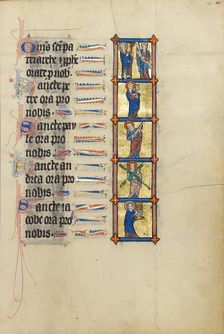 Omnes sci pa
triarche et pphe
orate p nob
Sancte pe
tre ora pro
nobis.
Sancte pau
le ora pro
nobis.
Sancte an
drea ora pro
nobis.
Sancte ia
cobe ora pro
nobis.